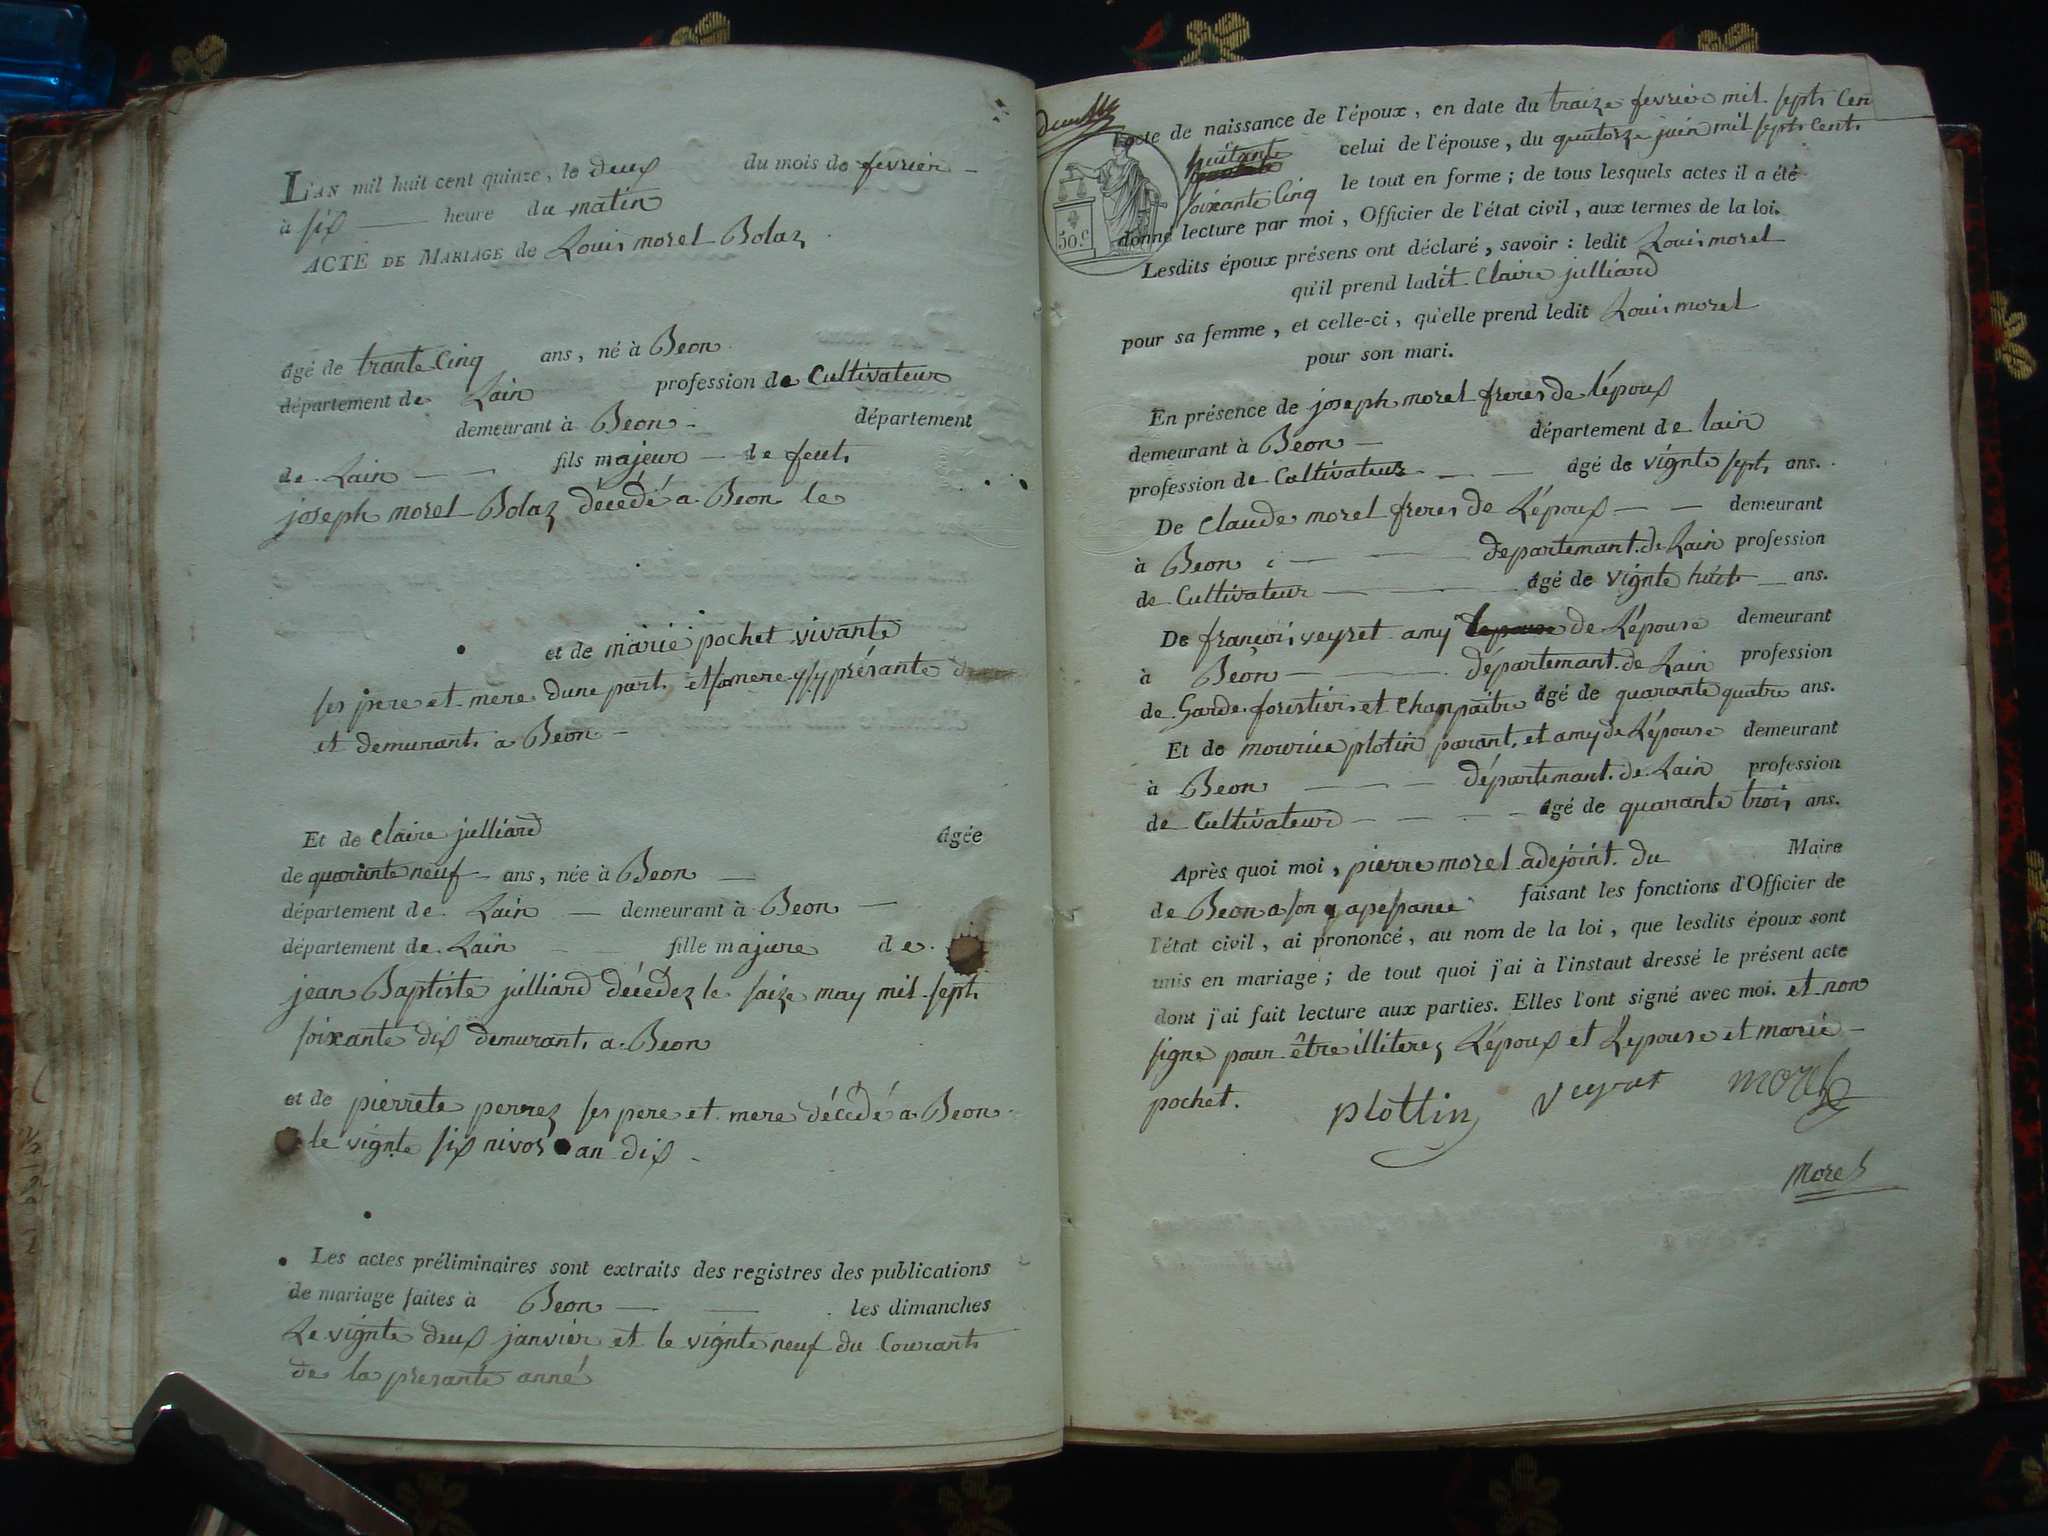 L'AN mil huit cent quinze, le deux du mois de fevrier
à six heure du matin
ACTE DE MARIAGE de Louis morel Bolaz
âgé de trante Cinq ans, né à Beon
département de Lain profession de Cultivateur
demeurant à Beon département
de Lain fils majeur de feut
joseph morel Bolaz décédé a Beon le
et de marie pochet vivante
ses pere et mere dune part et sa mere ysy présante
et demurant a Beon
Et de Claire julliard âgée
de quarante neuf ans, née à Beon
département de Lain demeurant à Beon
département de Lain fille majure de
jean Baptiste julliard décédez le saize may mil sept
soixante dix demurant a Beon
et de pierrete perrez ses pere et mere décédé a Beon
le vignte six nivos an dix
Les actes préliminaires sont extraits des registres des publications
de mariage faites à Beon les dimanches
Le vignte deux janvier et le vignte neuf du Courant
de la presante anné
acte de naissance de l'époux, en date du traize fevrier mil sept Cen
huitante celui de l'épouse, du quatorze juin mil sept Cent
soixante Cinq le tout en forme; de tous lesquels actes il a été
donné lecture par moi, Officier de l'état civil, aux termes de la loi.
50.c
Lesdits époux présens ont déclaré, savoir: ledit Louis morel
qu'il prend ladit Claire julliard
pour sa femme, et celle-ci, qu'elle prend ledit Louis morel
pour son mari.
En présence de joseph morel freres de lépoux
demeurant à Beon département de lain
profession de Cultivateur âgé de vignte sept ans.
De Claude morel freres de Lépoux demeurant
à Beon departemant de Lain profession
de Cultivateur âgé de vignte huit ans.
De françois veyret amy de Lépouse demeurant
à Beon départemant de Lain profession
de Garde forestier et Champaitre âgé de quarante quatre ans.
Et de mouriee plotin parant et amy de Lépouse demeurant
à Beon départemant de Lain profession
de Cultivateur âgé de quarante trois ans.
Après quoi moi, pierre morel adejoint du Maire
de Beon a son apessance faisant les fonctions d'Officier de
l'état civil, ai prononcé, au nom de la loi, que lesdits époux sont
unis en mariage; de tout quoi j'ai à l'instaut dressé le présent acte
dont j'ai fait lecture aux parties. Elles l'ont signé avec moi. et non
signe pour être illiterez Lépoux et Lepouse et marie
pochet. plottin veyret morel
morel